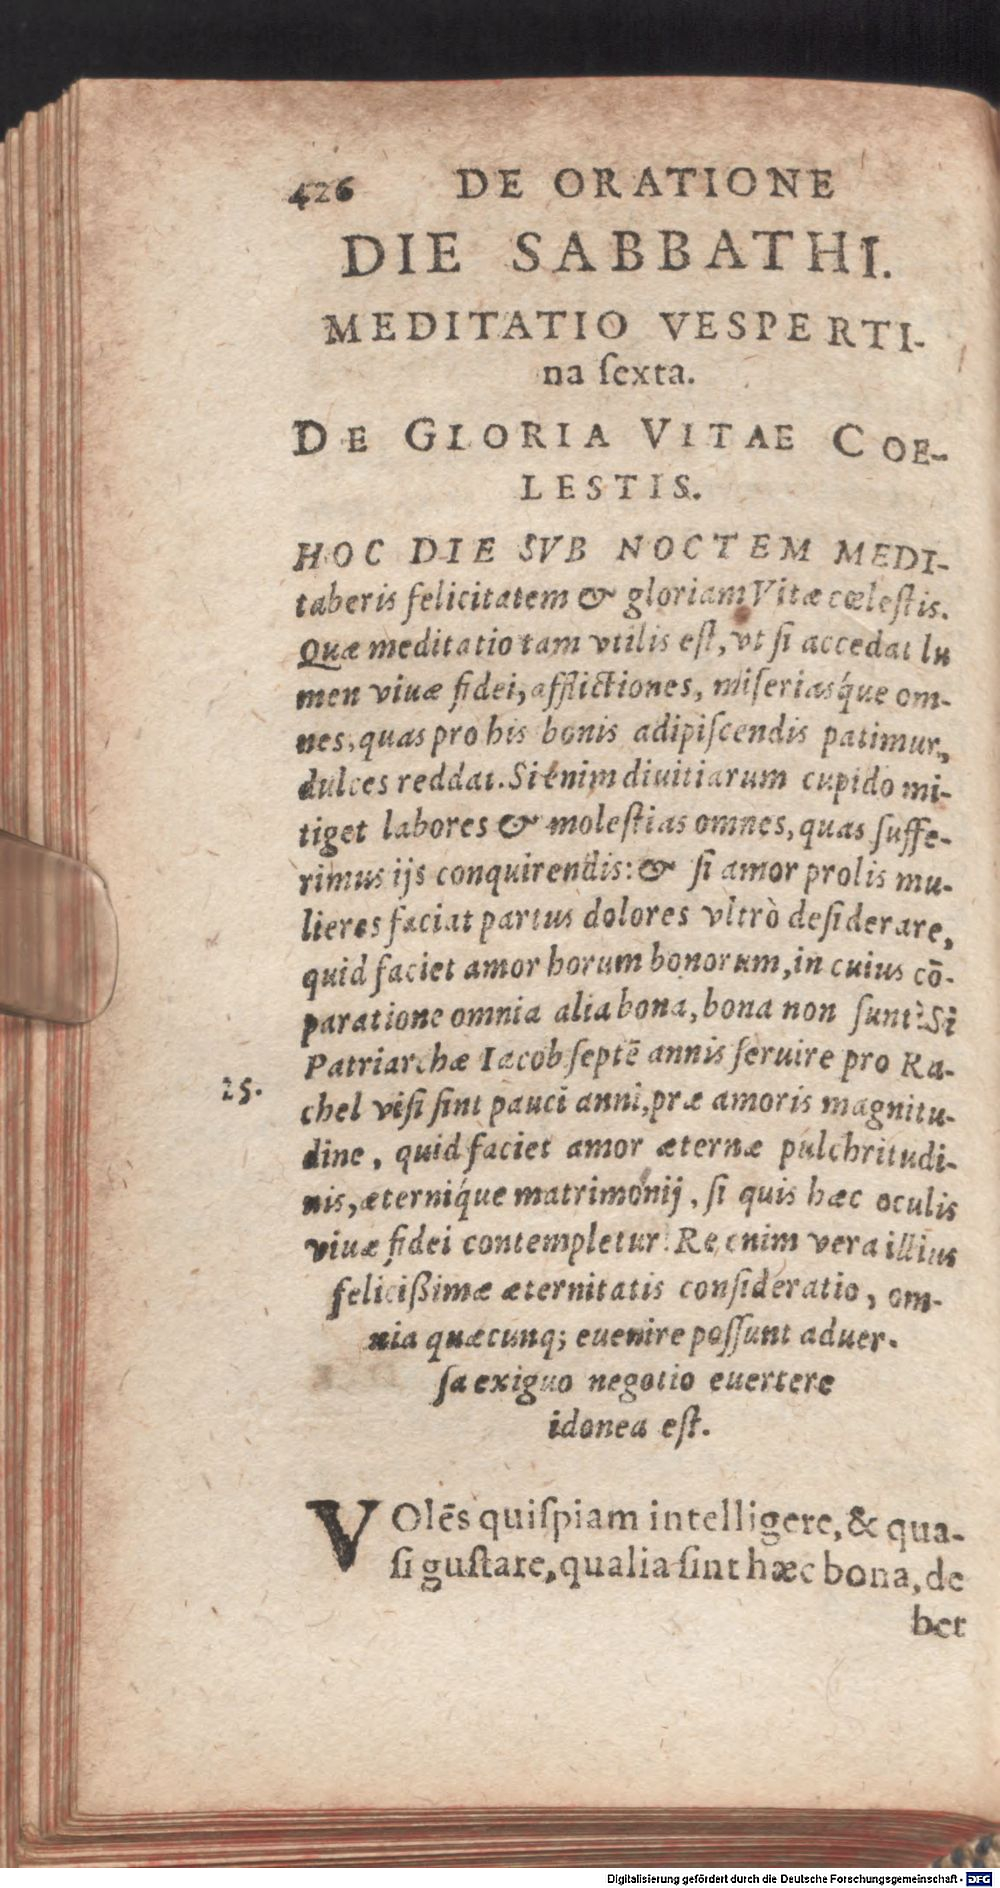 426 DE ORATIONE
DIE SABBATHI.
MEDITATIO VESPERTI-
na ſexta.
DE GLORIA VITAE COE-
LESTIS.
HOC DIE SVB NOCTEM MEDI-
taberis felicitatem & gloriam Vitæ cœleſtis.
Quæ meditatio tam vtilis eſt, vt ſi accedat lu
men viuæ fidei, afflictiones, miſeriasq́ue om-
nes, quas pro his bonis adipiſcendis patimur,
dulces reddat. Si enim diuitiarum cupido mi-
tiget labores & moleſtias omnes, quas ſuffe-
rimus ijs conquirendis: & ſi amor prolis mu-
lieres faciat partus dolores vltrò deſiderare,
quid faciet amor horum bonorum, in cuius cō-
paratione omnia alia bona, bona non ſunt? Si
Patriarchæ Iacob ſeptē annis ſeruire pro Ra-
25. chel viſi ſint pauci anni, præ amoris magnitu-
dine, quid faciet amor æternæ pulchritudi-
nis, æterniq́ue matrimonij, ſi quis hæc oculis
viuæ fidei contempletur? Re enim vera illius
feliciſsimæ æternitatis conſideratio, om-
nia quæcunq; euenire poſſunt aduer-
ſa exiguo negotio euertere
idonea eſt.
VOlēs quiſpiam intelligere, & qua-
ſi guſtare, qualia ſint hæc bona, de
bet
Digitalisierung gefördert durch die Deutsche Forschungsgemeinschaft - DFG